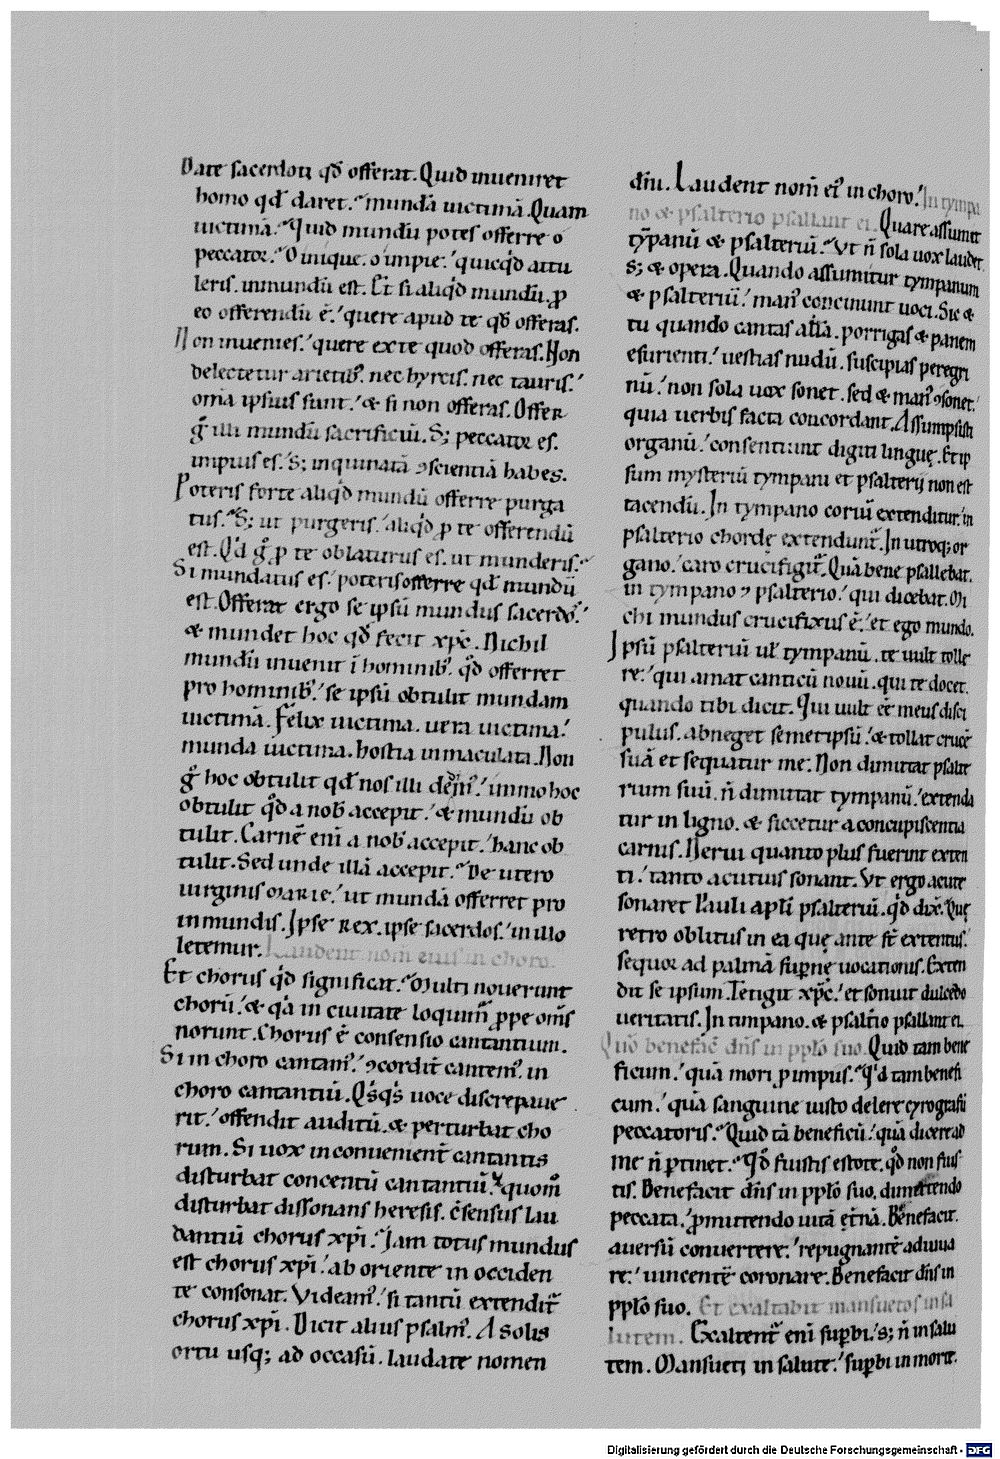 Date sacerdoti qd̄ offerat. Quid inueniret
homo qd̄ daret. mundā uictimā. Quam
uictimā. Quid mundū potes offerre o
peccator. O inique. o impie. quicq̇d attu
leris. inmundū est. Et si aliq̇d mundū ꝓ
eo offerendū ē. quere apud te qd̄ offeras.
Non inuenies. quere ex te quod offeras. Non
delectetur arietib᷒. nec hyrcis. nec tauris.
om̄a ipsius sunt. & si non offeras. Offer
g̊ illi mundū sacrificiū. S; peccator es.
impius es. S; inquinatā ꝯscientiā habes.
Poteris forte aliq̇d mundū offerre purga
tus. S; ut purgeris. aliq̇d ꝓ te offerendū
est. Q̇d g̊ ꝓ te oblaturus es. ut munderis.
Si mundatus es. poteris offerre qd̄ mundū
est. Offerat ergo se ipsū mundus sacerdos.
& mundet hoc qd̄ fecit xp̄c. Nichil
mundū inuenit ī hominib᷒. qd̄ offerret
pro hominib᷒. se ipsū obtulit mundam
uictimā. Felix uictima. uera uictima.
munda uictima. hostia inmaculata. Non
g̊ hoc obtulit qd̄ nos illi dedim᷒. immo hoc
obtulit qd̄ a nob᷒ accepit. & mundū ob
tulit. Carnē eni̅ a nob᷒ accepit. hanc ob
tulit. Sed unde illā accepit. De utero
uirginis MARIE. ut mundā offerret pro
inmundis. Ipse REX. ipse sacerdos. in illo
letemur. Laudent nom̄ eius in choro.
Et chorus q̇d significat. Multi nouerunt
chorū. & q̇a in ciuitate loquim̄ ꝓpe om̄s
norunt. Chorus ē consensio cantantium.
Si in choro cantam᷒. ꝯcordit̄ cantem᷒. in
choro cantantiū. Q̇sq̇s uoce discrepaue
rit. offendit auditū. & perturbat cho
rum. Si uox inconuenient̄ cantantis
disturbat concentū cantantiū. quom̊
disturbat dissonans heresis. c̄sensus lau
dantiū chorus xp̄i. Iam totus mundus
est chorus xp̄i. ab oriente in occiden
te consonat. Videam᷒. si tantū extendit̄
chorus xp̄i. Dicit alius psalm᷒. A solis
ortu usq; ad occasū. laudate nomen
dn̄i. Laudent nom̄ ei᷒ in choro. In tympa
no & psalterio psallant ei. Quare assumit
tȳpanū & psalteriū. Vt n̄ sola uox laudet.
S; & opera. Quando assumitur tympanum
& psalteriū. man᷒ concinunt uoci. Sic &
tu quando cantas all̄a. porrigas & panem
esurienti. uestias nudū. suscipias peregri
nū. non sola uox sonet. sed & man᷒ ꝯsonet.
quia uerbis facta concordant. Assumpsisti
organū. consentiunt digiti linguę. Et ip
sum mysteriū tympani et psalterij non est
tacendū. In tympano coriū extenditur. in
psalterio chordę extendunt̄. In utroq; or
gano. caro crucifigit̄. Quā bene psallebat.
in tympano ⁊ psalterio. qui dicebat. Mi
chi mundus crucifixus ē. et ego mundo.
Ipsū psalteriū ul̄ tympanū. te uult tolle
re. qui amat canticū nouū. qui te docet.
quando tibi dicit. Qui uult ēe meus disci
pulus. abneget semetipsū. & tollat crucē
suā et sequatur me. Non dimittat psalte
rium suū. n̄ dimittat tympanū. extenda
tur in ligno. & siccetur a concupiscentia
carnis. Nerui quanto plus fuerint exten
ti. tanto acutius sonant. Vt ergo acute
sonaret Pauli apl̄i psalteriū. q̇d dix̄. Quę
retro oblitus in ea quę ante st̄ extentus.
sequor ad palmā supernę uocationis. Exten
dit se ipsum. Tetigit xp̄c. et sonuit dulcedo
ueritatis. In timpano. & psalt̄io psallant ei.
Quō benefac̄ dn̄s in pp̄lo suo. Quid tam bene
ficum. quā mori ꝓ impiis. Q̇d tam benefi
cum. quā sanguine iusto delere cyrografū
peccatoris. Quid tā beneficū. quā dicere ad
me n̄ ꝑtinet. Qd̄ fuistis estote. qd̄ non fuis
tis. Benefacit dn̄s in pp̄lo suo. dimittendo
peccata. ꝓmittendo uitā ęt̄nā. Benefacit.
auersū conuertere. repugnantē adiuua
re. uincentē coronare. Benefacit dn̄s in
pp̄lo suo. Et exaltabit mansuetos in sa
lutem. Exaltent̄ eni̅ suꝑbi. s; n̄ in salu
tem. Mansueti in salute. suꝑbi in morte.
Digitalisierung gefördert durch die Deutsche Forschungsgemeinschaft - DFG